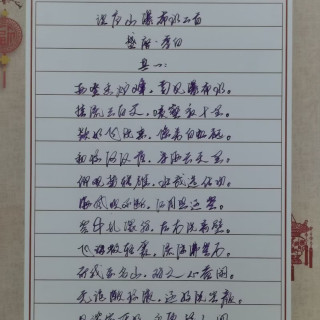 望庐山瀑布水二首
盛唐·李白
其一:
西登香炉峰,南见瀑布水。
挂流三百丈,喷壑数十里。
欻如飞电来,隐若白虹起。
初惊河汉落,半洒云天里。
仰观势转雄,壮哉造化功。
海风吹不断,江月照还空。
空中乱潈射,左右洗青壁。
飞珠散轻霞,流沫沸穹石。
而我乐名山,对之心益闲。
无论漱琼液,还得洗尘颜。